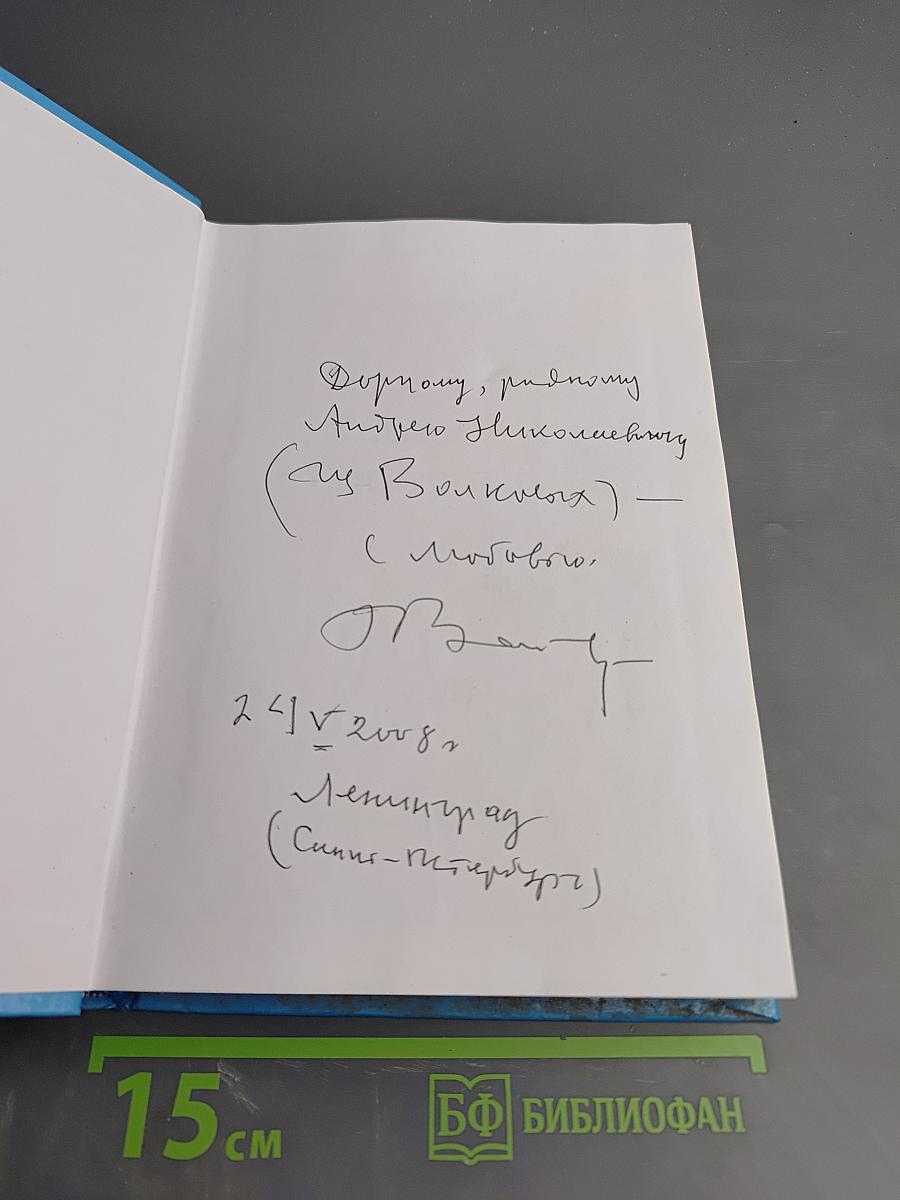 Дорогому, родному
Андрею Николаевичу
(из Волковых) —
с любовью.
24 V 2008 г
Ленинград
(Санкт-Петербург)
15 см
БФ БИБЛИОФАН